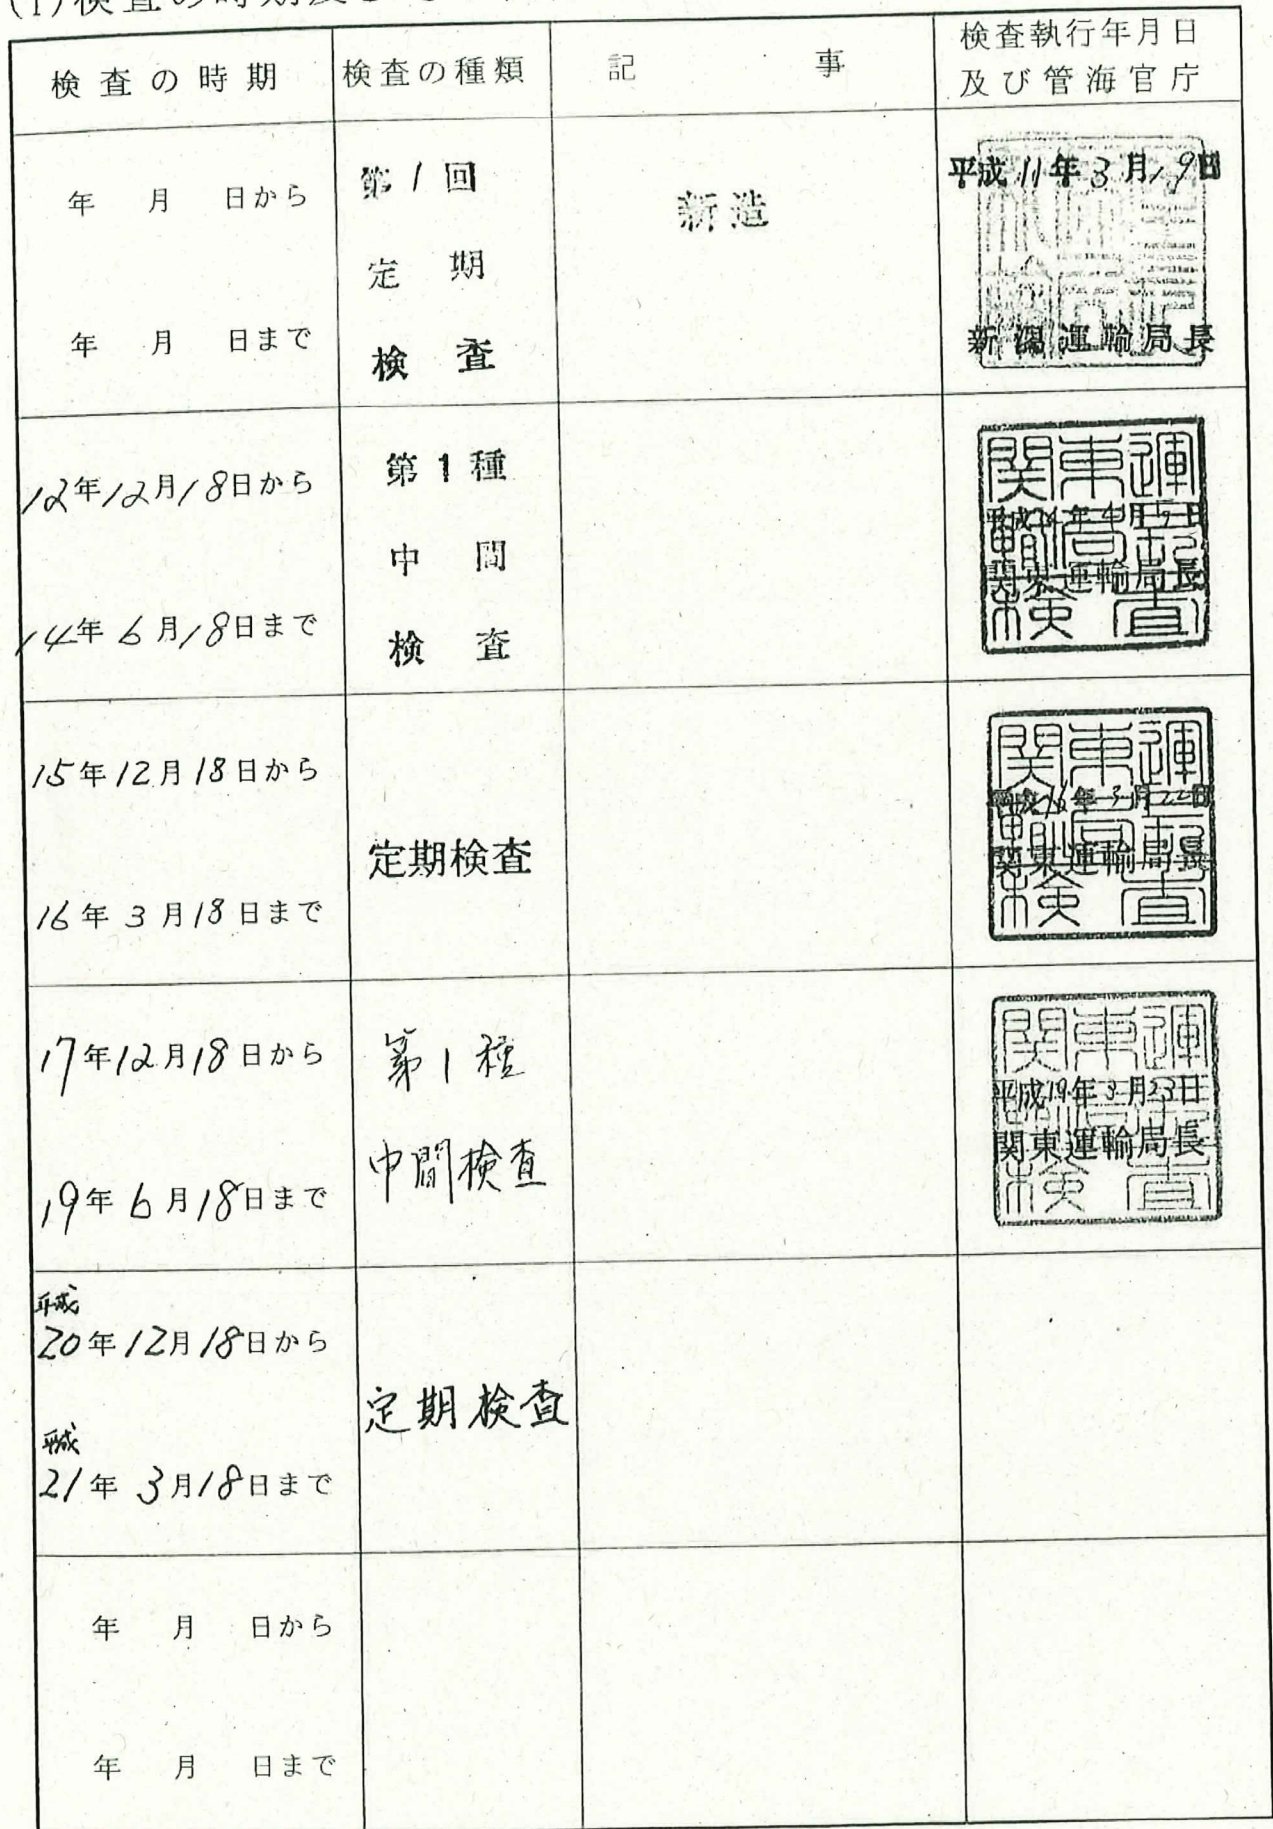 (1)検査の時期及び
検査の時期
検査の種類
記事
検査執行年月日
及び管海官庁
年 月 日から
年 月 日まで
第1回
定期
検査
新造
平成11年3月19日
新潟運輸局長
12年12月18日から
14年6月18日まで
第1種
中間
検査
関東運
関東運輸局長
検査
15年12月18日から
16年3月18日まで
定期検査
関東運
平成16年3月22日
関東運輸局長
検査
17年12月18日から
19年6月18日まで
第1種
中間検査
関東運
平成19年3月23日
関東運輸局長
検査
平成
20年12月18日から
平成
21年3月18日まで
定期検査
年 月 日から
年 月 日まで